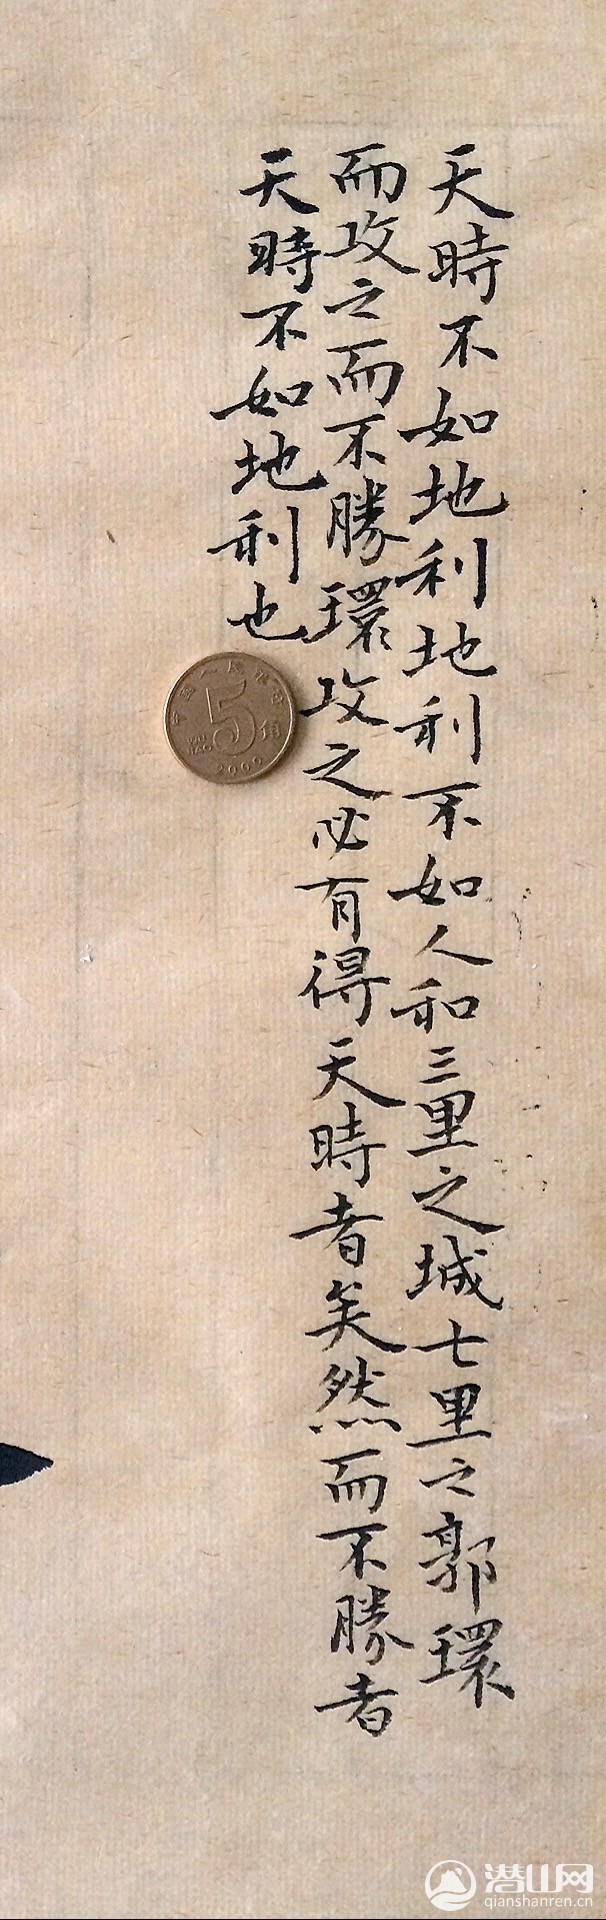 天時不如地利地利不如人和三里之城七里之郭環
而攻之而不勝環攻之必有得天時者矣然而不勝者
天時不如地利也
中国人民银行
5角
WU JIAO
潜山网
qianshanren.cn